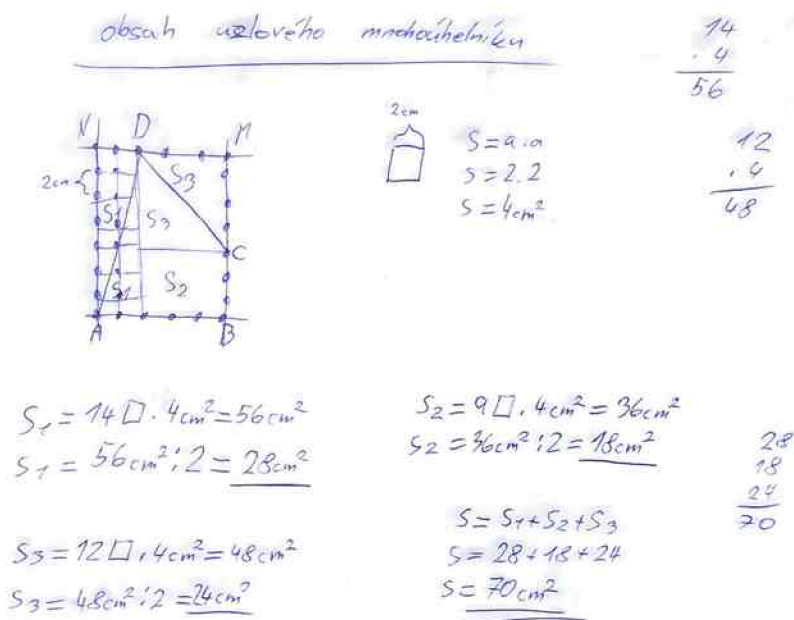 obsah uzlového mnohoúhelníku
14
. 4
56
N D M
2cm
S3
S1 S3
C
S1 S2
A B
2cm
S = a.a
S = 2.2
S = 4cm²
12
. 4
48
S1 = 14□ . 4cm² = 56cm²
S1 = 56cm² : 2 = 28cm²
S2 = 9□ . 4cm² = 36cm²
S2 = 36cm² : 2 = 18cm²
28
18
24
70
S3 = 12□ . 4cm² = 48cm²
S3 = 48cm² : 2 = 24cm²
S = S1 + S2 + S3
S = 28 + 18 + 24
S = 70cm²